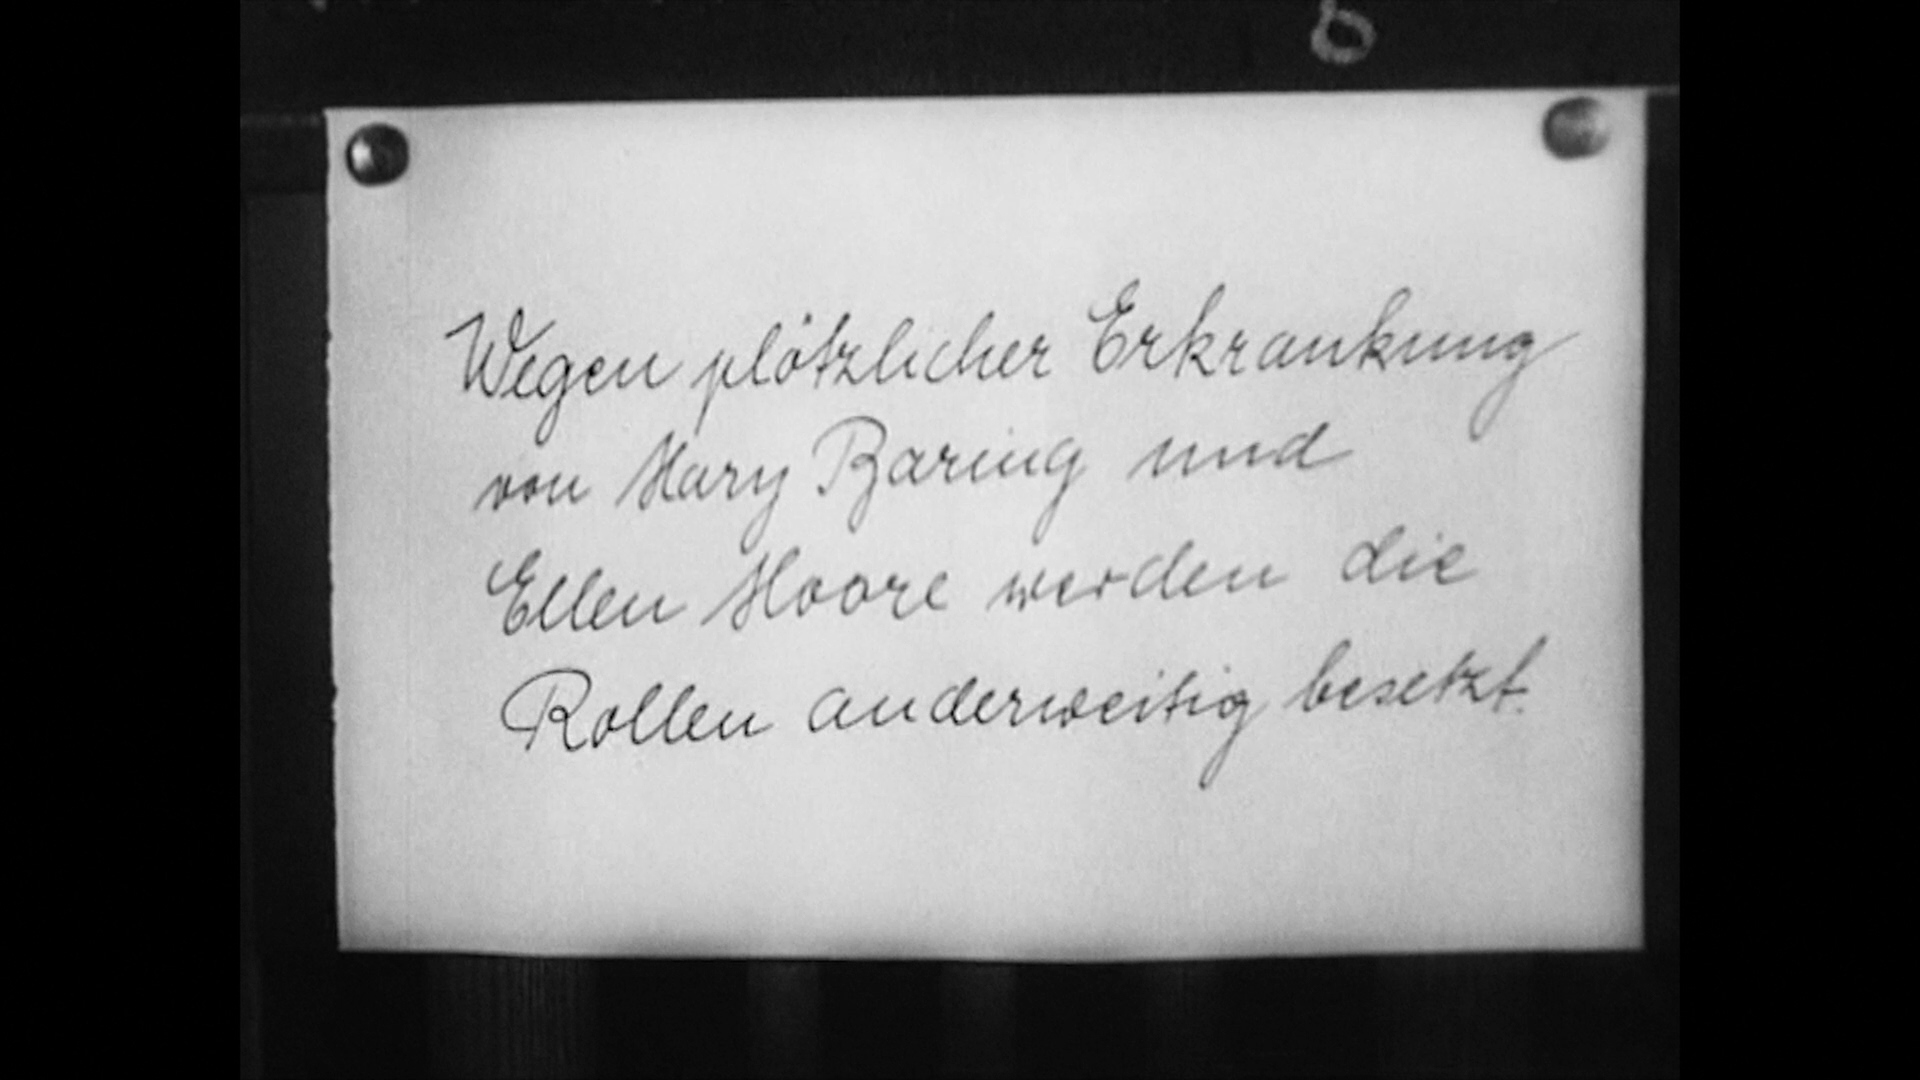 Wegen plötzlicher Erkrankung
von Mary Baring und
Ellen Moore werden die
Rollen anderweitig besetzt.